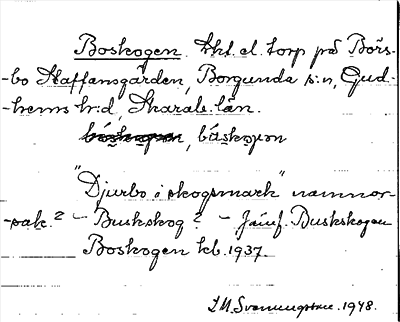 Boskogen. tht. el. torp på Börs-
-bo Staffansgården, Borgunda s:n, Gud-
hems hr:d, Skarab. län.
båskoɡɒn
"Djurbo i skogsmark" namnor-
-sak? - Buskskog? - Jämf. Buskskogen
Boskogen kb. 1937.
1948.